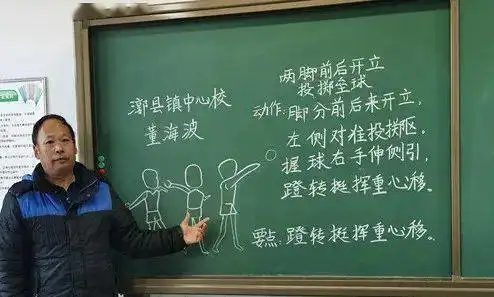 漷县镇中心校
董海波
两脚前后开立
投掷垒球
动作:脚分前后来开立,
左侧对住投掷区。
握球右手伸侧引,
蹬转挺挥重心移。
要点:蹬转挺挥重心移。